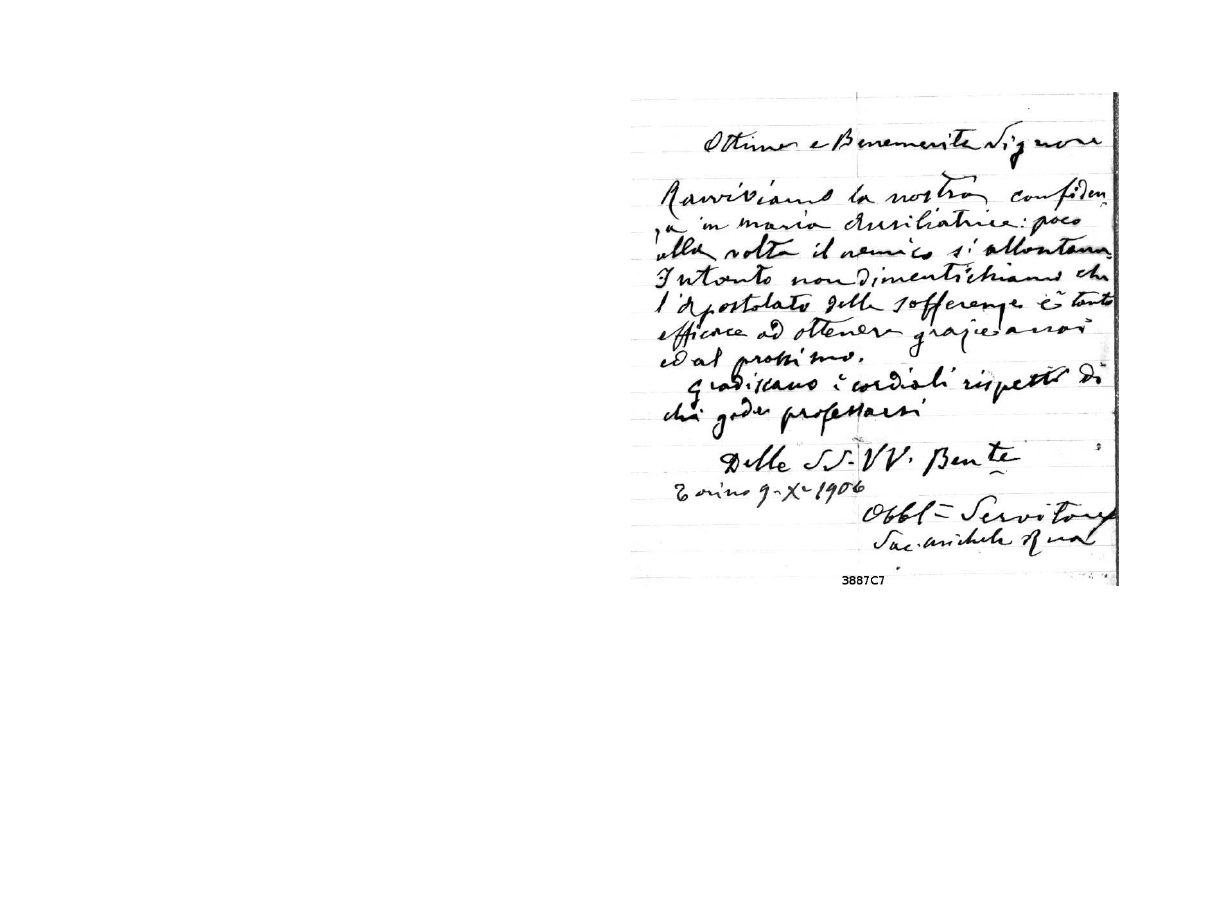 Ottime e Benemerite Signore
Ravviviamo la nostra confiden
za in Maria Ausiliatrice: poco
alla volta il nemico si allontana.
Intanto non dimentichiamo che
l'apostolato delle sofferenze è tanto
efficace ad ottenere grazie a noi
ed al prossimo.
Gradiscano i cordiali rispetti di
chi gode professarsi
Delle SS. VV. Bente
Torino 9-X-1906
Obbl= Servitore
Sac. Michele Rua
3887C7